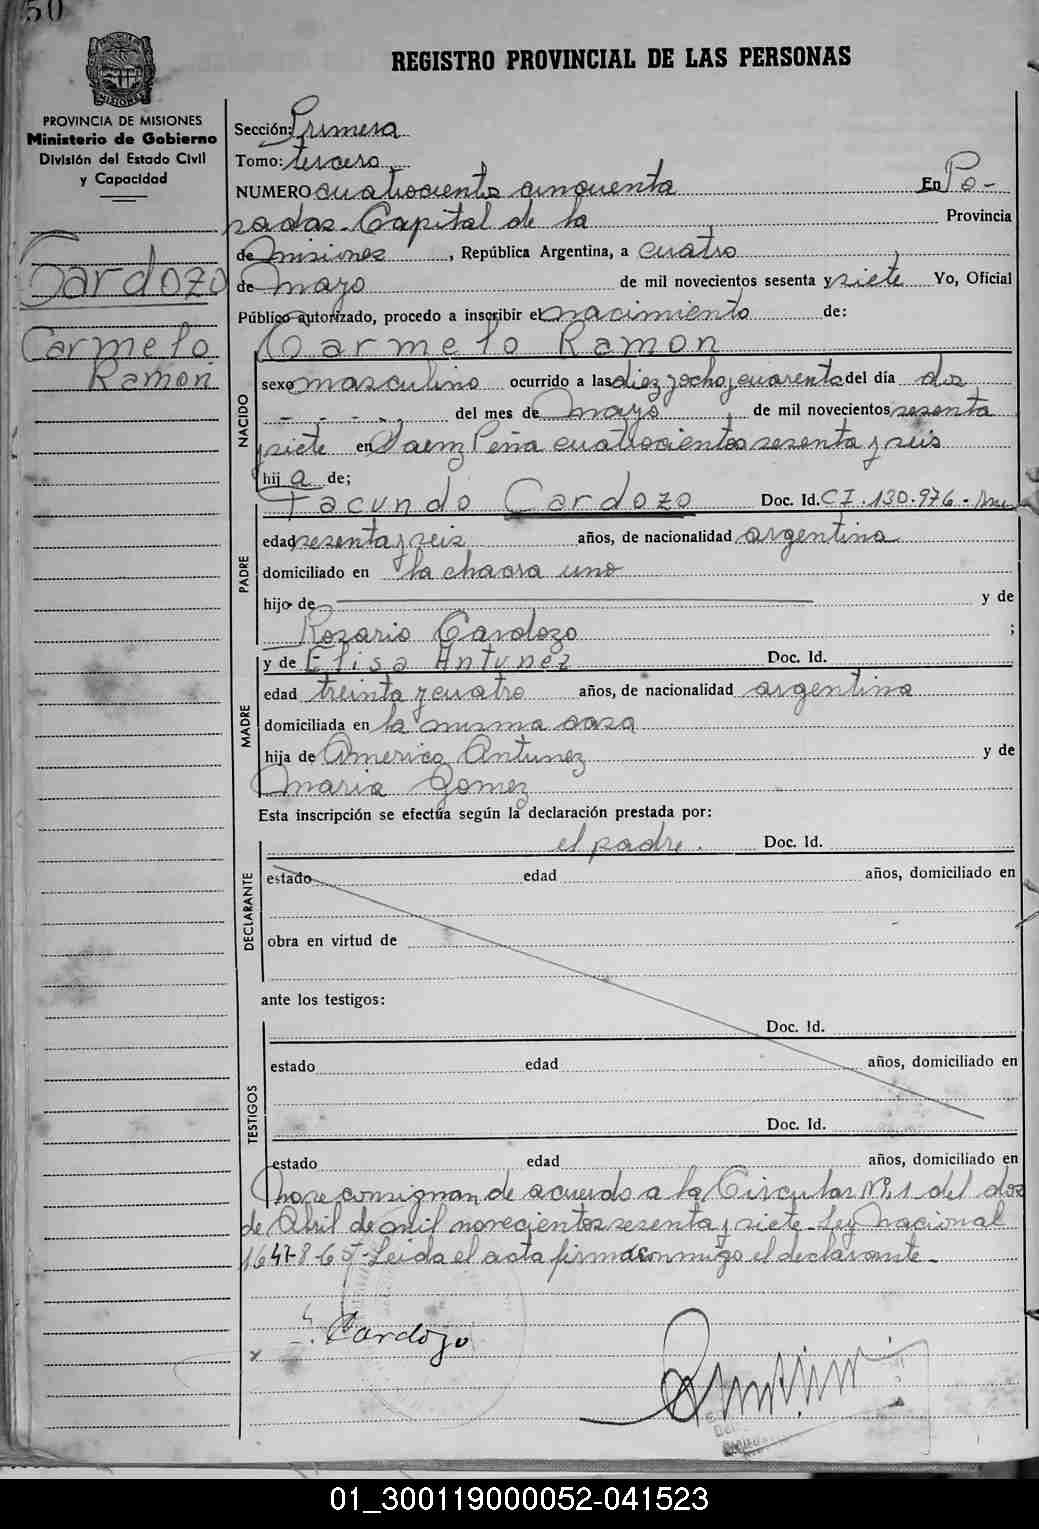 50
REGISTRO PROVINCIAL DE LAS PERSONAS
PROVINCIA DE MISIONES
Ministerio de Gobierno
División del Estado Civil
y Capacidad
Cardozo
Carmelo
Ramon
Sección: Primera
Tomo: tercero
NUMERO cuatrocientos cincuenta En Po-
sadas Capital de la Provincia
de Misiones, República Argentina, a cuatro
de Mayo de mil novecientos sesenta y siete Yo, Oficial
Público autorizado, procedo a inscribir el nacimiento de:
Carmelo Ramon
NACIDO
sexo masculino ocurrido a las diez y ocho y cuarenta del día dos
del mes de Mayo, de mil novecientos sesenta
y siete en Saenz Peña cuatrocientos sesenta y seis
hij a de;
PADRE
Facundo Cardozo Doc. Id. CI. 130.976 -
edad sesenta y seis años, de nacionalidad argentina
domiciliado en la chacra uno
hijo de y de
Rosario Cardozo ;
MADRE
y de Elisa Antunez Doc. Id.
edad treinta y cuatro años, de nacionalidad argentina
domiciliada en la misma casa
hija de Americo Antunez y de
Maria Gomez
Esta inscripción se efectúa según la declaración prestada por:
DECLARANTE
el padre. Doc. Id.
estado edad años, domiciliado en
obra en virtud de
ante los testigos:
TESTIGOS
Doc. Id.
estado edad años, domiciliado en
Doc. Id.
estado edad años, domiciliado en
No se consignan de acuerdo a la Circular Nº 1 del dos
de Abril de mil novecientos sesenta y siete - Ley Nacional
1647-8-65 - Leida el acta firma conmigo el declarante -
Cardozo
01_300119000052-041523